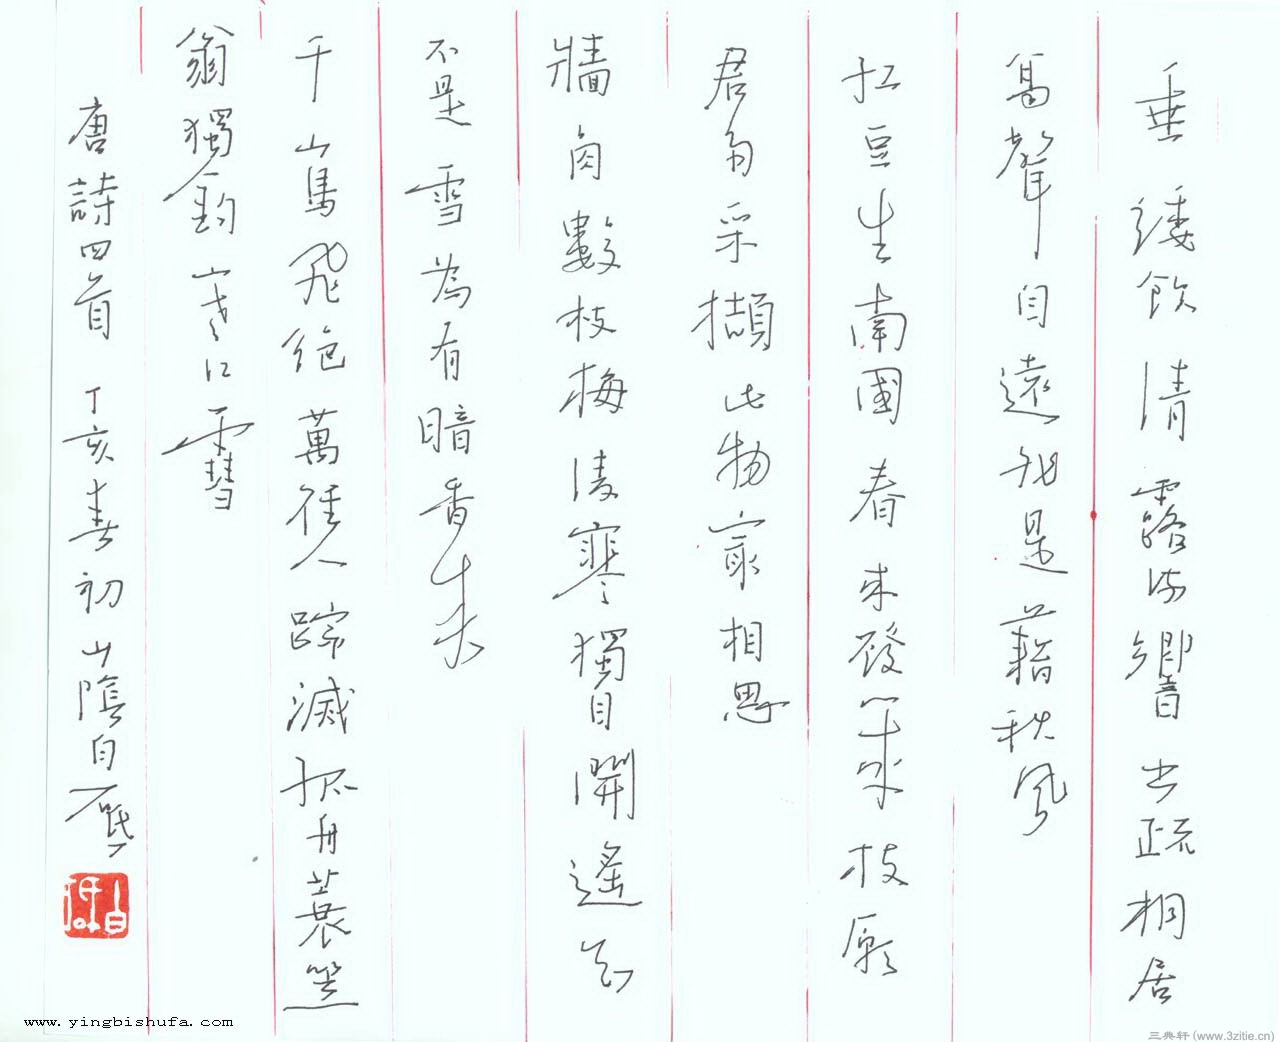 垂緌飲清露流響出疏桐居
高聲自遠非是藉秋風
紅豆生南國春來發幾枝願
君多采擷此物最相思
牆角數枝梅凌寒獨自開遙知
不是雪為有暗香來
千山鳥飛絕萬徑人踪滅孤舟蓑笠
翁獨釣寒江雪
唐詩四首 丁亥春初山陰自
www.yingbishufa.com
三典轩(www.3zitie.cn)